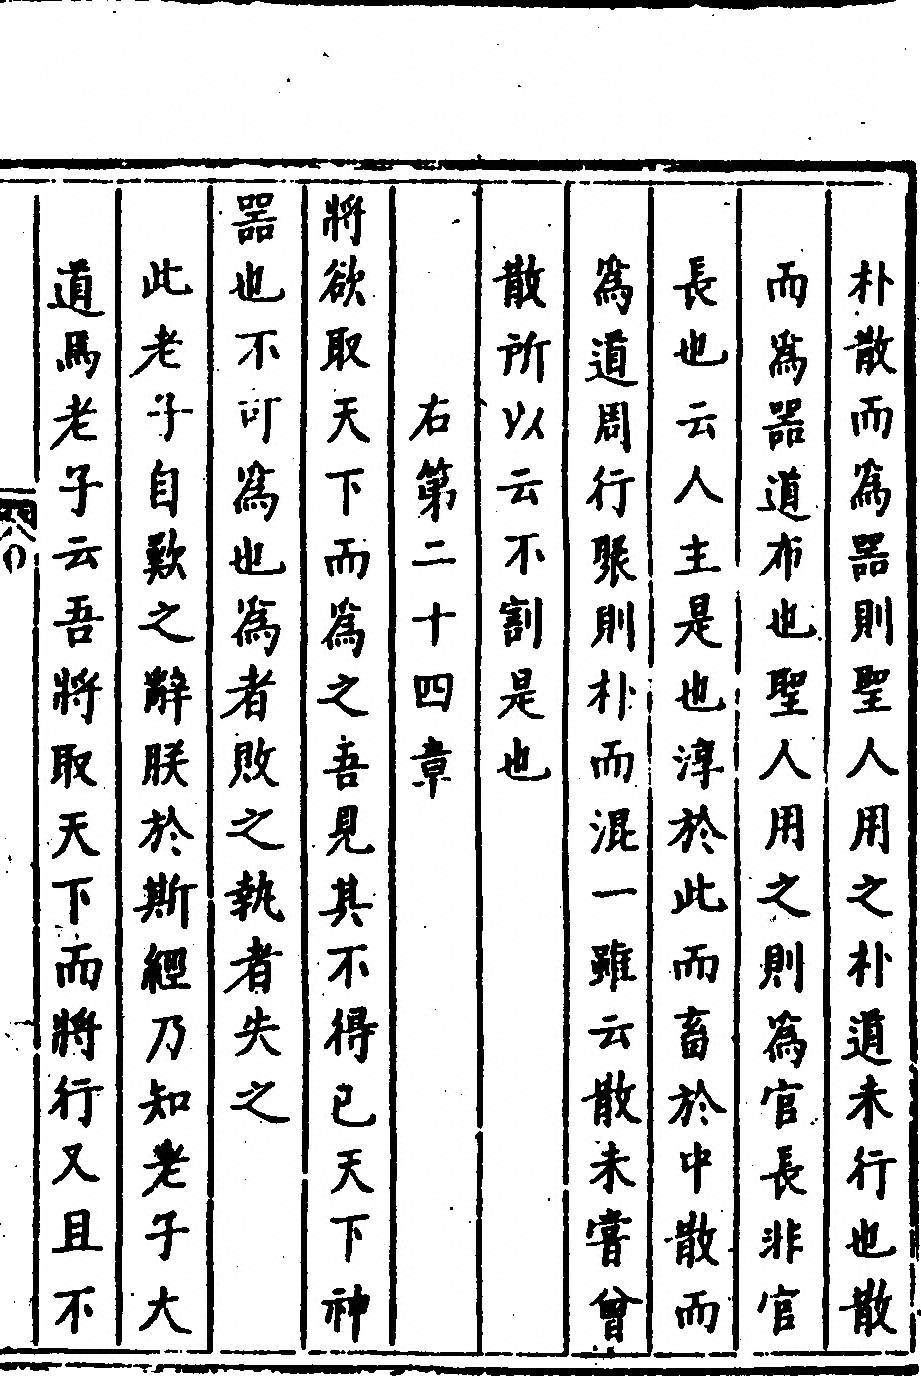 朴散而為器則聖人用之朴道未行也散
而為器道布也聖人用之則為官長非官
長也云人主是也淳於此而畜於中散而
為道周行聚則朴而混一雖云散未嘗曾
散所以云不割是也
右第二十四章
將欲取天下而為之吾見其不得已天下神
器也不可為也為者敗之執者失之
此老子自歎之辭朕於斯經乃知老子大
道焉老子云吾將取天下而將行又且不